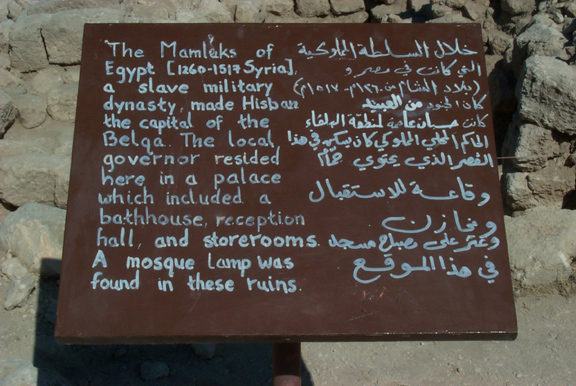 The Mamluks of
Egypt [1260-1517 Syria],
a slave military
dynasty, made Hisban
the capital of the
Belqa. The local
governor resided
here in a palace
which included a
bathhouse, reception
hall, and storerooms.
A mosque lamp was
found in these ruins.
خلال السلطة المملوكية
التي كانت في مصر و
(بلاد الشام من ١٢٦٠م-١٥١٧م)
كان الجنود من العبيد
كانت حسبان عاصمة لمنطقة البلقاء
الحاكم المحلي المملوكي كان يسكن في هذا
القصر الذي يحتوي حمام
وقاعة للاستقبال
ومخازن
وعثر على مصباح مسجد
في هذا الموقع